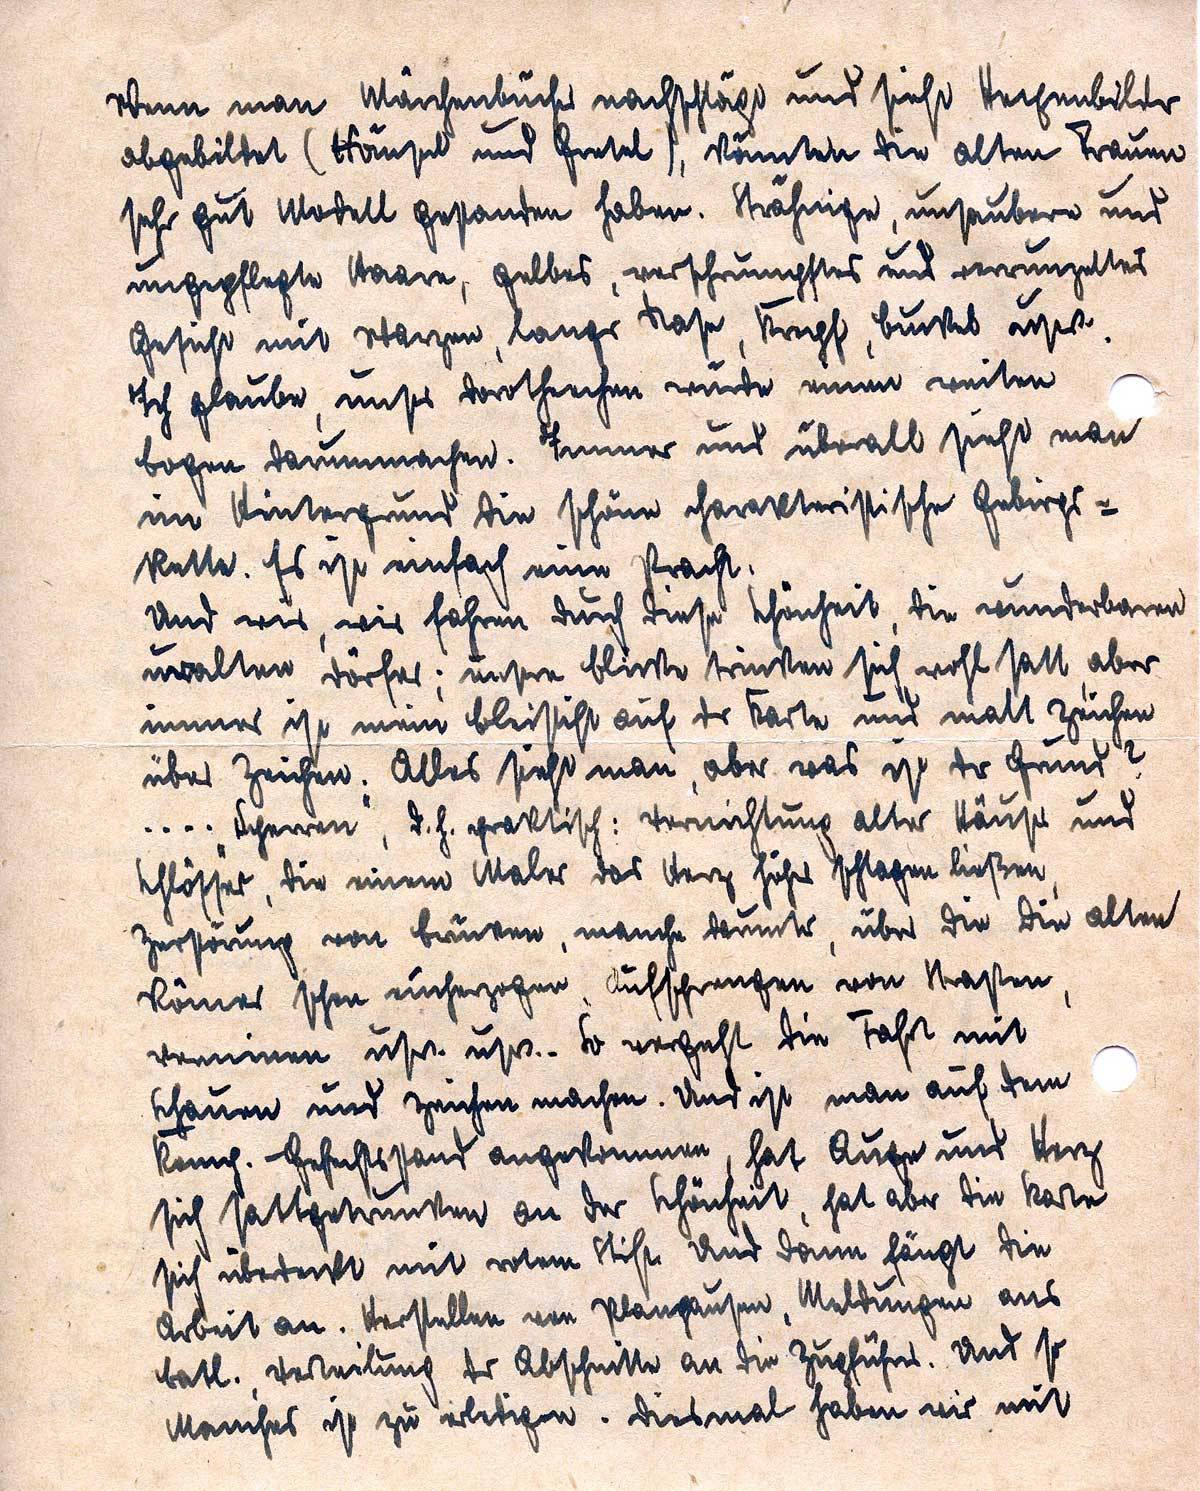 Wenn man Märchenbücher nachschlägt und sieht Hexenbilder
abgebildet (Hänsel und Gretel), könnten die alten Frauen
sehr gut Modell gestanden haben. Strähnige, unsaubere und
ungepflegte Haare, gelbes, verschrumpftes und verrunzeltes
Gesicht mit Warzen, langer Nase, Kropf, Buckel usw.
Ich glaube, unser Dorotheechen würde einen weiten
Bogen darummachen. Immer und überall sieht man
im Hintergrund die schöne charakteristische Gebirgs=
kette. Es ist einfach eine Pracht.
Und wir, wir fahren durch diese Schönheit, die wunderbaren
uralten Dörfer; unsere Blicke trinken sich wohl satt, aber
immer ist mein Bleistift auf der Karte und malt Zeichen
über Zeichen. Alles sieht man, aber was ist der Grund?
.... "Sperren", d.h. praktisch: Vernichtung alter Häuser und
Schlösser, die einem Maler das Herz höher schlagen ließen,
Zerstörung von Brücken, manche darunter, über die die alten
Römer schon einherzogen, Aufsprengen von Straßen,
Verminen usw. usw.. So vergeht die Fahrt mit
Schauen und Zeichen machen. Und ist man auf dem
Komp.-Gefechtsstand angekommen, hat Auge und Herz
sich sattgetrunken an der Schönheit, hat aber die Karte
sich überdeckt mit rotem Stift. Und dann fängt die
Arbeit an. Herstellen von Planpausen, Meldungen ans
Batl., Verteilung der Abschnitte an die Zugführer. Und so
Manches ist zu erledigen. Diesmal haben wir mit